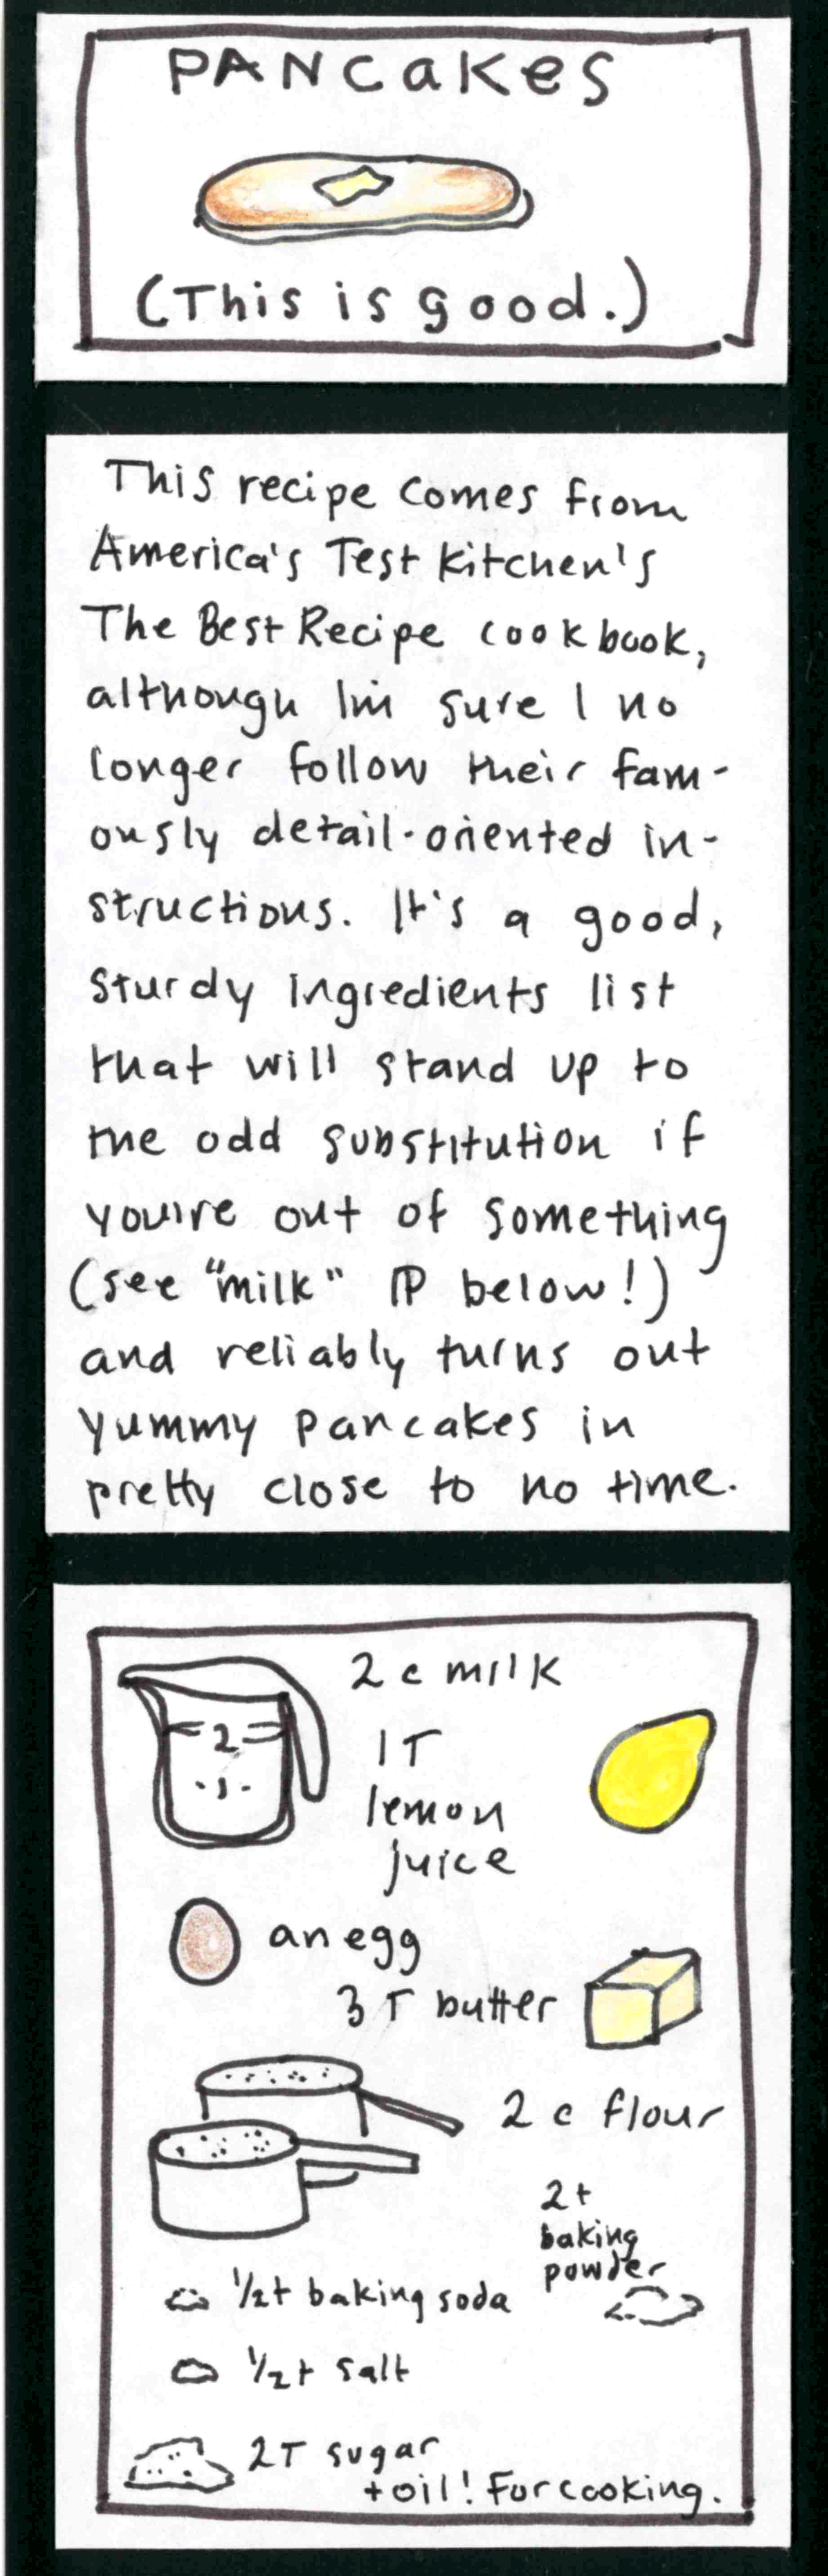 PANCAKES
(This is good.)
This recipe comes from
America's Test Kitchen's
The Best Recipe cookbook,
although I'm sure I no
longer follow their fam-
ously detail-oriented in-
structions. It's a good,
sturdy ingredients list
that will stand up to
the odd substitution if
you're out of something
(see "milk" IP below!)
and reliably turns out
yummy pancakes in
pretty close to no time.
2 c milk
2
1
1T
lemon
juice
an egg
3 T butter
2 c flour
2t
baking
powder
1/2t baking soda
1/2t salt
2T sugar
+oil! For cooking.